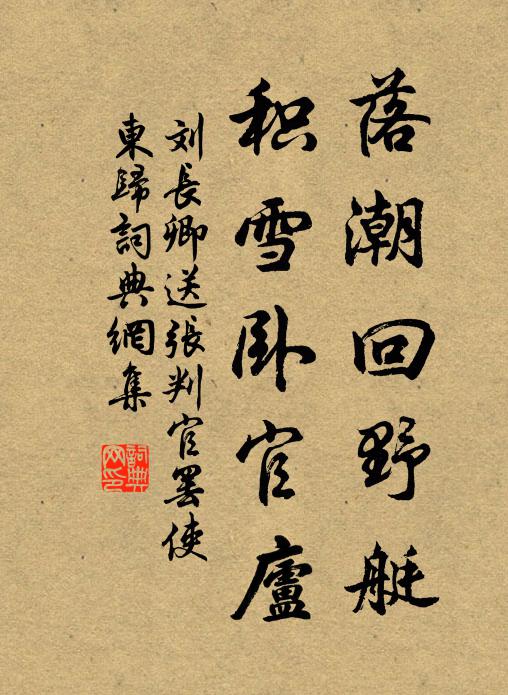 落潮回野艇
积雪卧官廬
刘長卿送張判官罢使
東歸詞典網集
詞典
网印